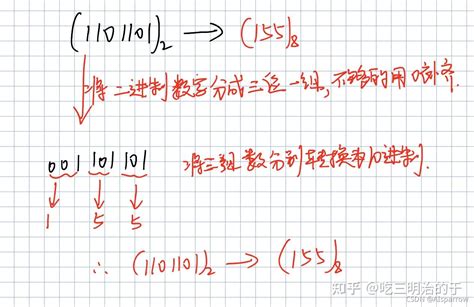 (1101101)₂ → (155)₈
将二进制数字分成三位一组,不够的用0补齐.
001 101 101 将三组数分别转换为10进制.
1 5 5
∴ (1101101)₂ → (155)₈
知乎 @吃三明治的于
CSDN @Alsparrow